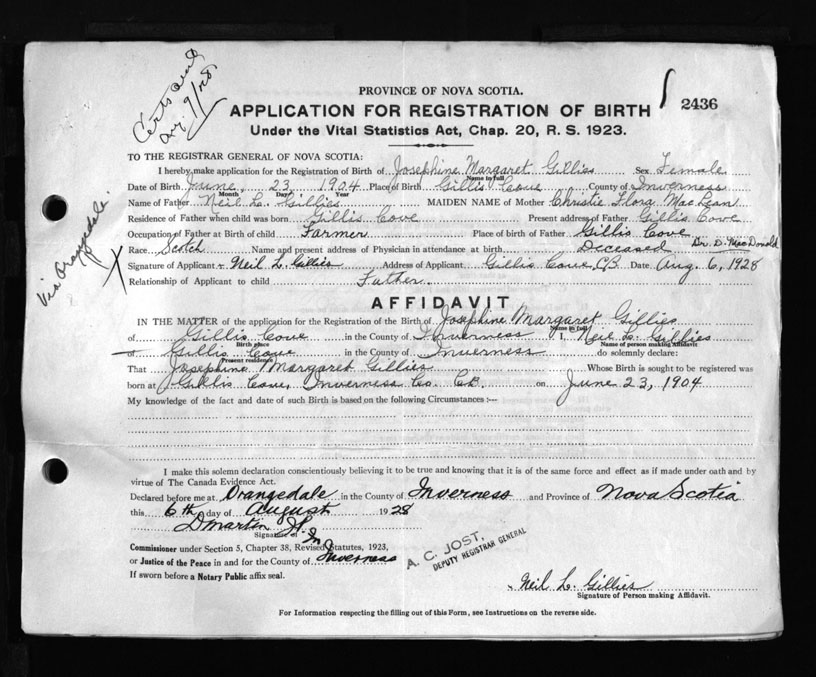 Certs sent
Aug. 9/28
PROVINCE OF NOVA SCOTIA.
2436
APPLICATION FOR REGISTRATION OF BIRTH
Under the Vital Statistics Act, Chap. 20, R. S. 1923.
TO THE REGISTRAR GENERAL OF NOVA SCOTIA:
I hereby make application for the Registration of Birth of Josephine Margaret Gillies Sex Female
Name in full
Date of Birth June, 23 1904 Place of Birth Gillis Cove County of Inverness
Month Day Year
Name of Father Neil L. Gillies MAIDEN NAME of Mother Christie Flora MacLean
Residence of Father when child was born Gillis Cove Present address of Father Gillis Cove
Occupation of Father at Birth of child Farmer Place of birth of Father Gillis Cove
Race Scotch Name and present address of Physician in attendance at birth Deceased Dr. D. MacDonald
Signature of Applicant Neil L. Gillies Address of Applicant Gillis Cove, C.B. Date Aug. 6, 1928
Relationship of Applicant to child Father.
Via Orangedale.
X
AFFIDAVIT
IN THE MATTER of the application for the Registration of the Birth of Josephine Margaret Gillies
Name in full
of Gillis Cove in the County of Inverness I, Neil L. Gillies
Birth place Name of person making Affidavit
of Gillis Cove in the County of Inverness do solemnly declare:
Present residence
That Josephine Margaret Gillies Whose Birth is sought to be registered was
born at Gillis Cove, Inverness Co. C.B. on June 23, 1904
My knowledge of the fact and date of such Birth is based on the following Circumstances :—
I make this solemn declaration conscientiously believing it to be true and knowing that it is of the same force and effect as if made under oath and by
virtue of The Canada Evidence Act.
Declared before me at Orangedale in the County of Inverness and Province of Nova Scotia
this 6th day of August 1928
D Martin J.P.
Signature of
Commissioner under Section 5, Chapter 38, Revised Statutes, 1923,
or Justice of the Peace in and for the County of Inverness
If sworn before a Notary Public affix seal.
A. C. JOST,
DEPUTY REGISTRAR GENERAL
Neil L. Gillies
Signature of Person making Affidavit.
For Information respecting the filling out of this Form, see Instructions on the reverse side.